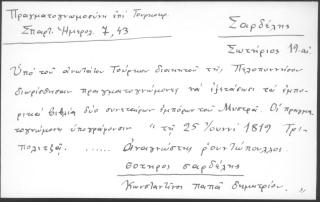 Πραγματογνωμοσύνη ἐπὶ Τουρκοκρ.
Σπαρτ. Ἡμερολ. 7, 43
Σαρδέλης
Σωτήριος 19 αἰ
Ὑπὸ τοῦ ἀνωτάτου Τούρκου διοικητοῦ τῆς Πελοποννήσου
διωρίσθησαν πραγματογνώμονες νὰ ἐξετάσωσι τὰ ἐμπο-
ρικὰ βιβλία δύο συνεταίρων ἐμπόρων τοῦ Μυστρᾶ. Οἱ πραγμα
τογνώμονες ὑπογράφουσιν "τῇ 25 Ἰουννί 1819 Τρι-
πολιτζᾷ. ...... Ἀναγνώστης ῥουντόπουλλος
σοτηρος σαρδέλης
Κωνσταντῖνος παπᾶ δημητρίου.